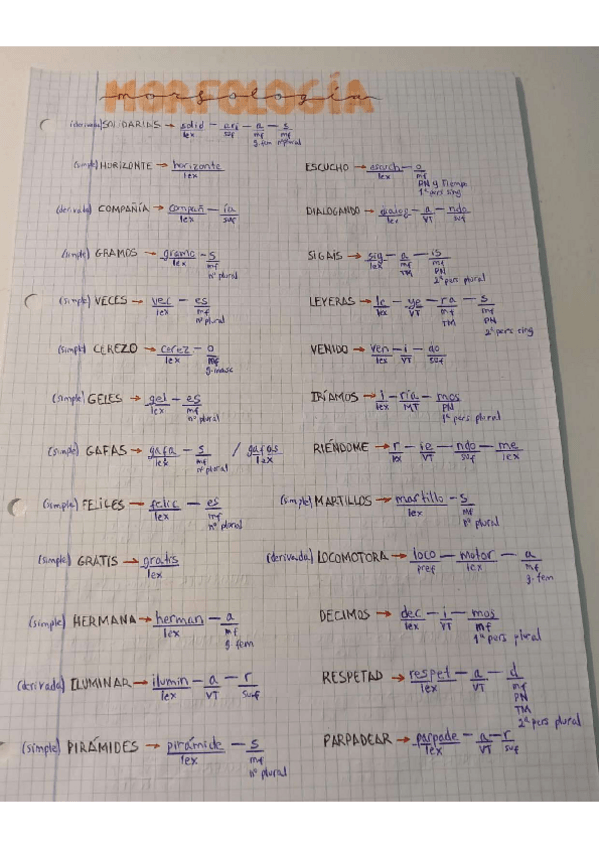 MORFOLOGÍA
morfología
(derivada) SOLIDARIAS → solid - ari - a - s
lex suf mf mf
g. fem nº plural
(simple) HORIZONTE → horizonte
lex
(derivada) COMPAÑÍA → compañ - ía
lex suf
(simple) GRAMOS → gramo - s
lex mf
nº plural
(simple) VECES → vec - es
lex mf
nº plural
(simple) CEREZO → cerez - o
lex mf
g. masc
(simple) GELES → gel - es
lex mf
nº plural
(simple) GAFAS → gafa - s / gafas
lex mf lex
nº plural
(simple) FELICES → felic - es
lex mf
nº plural
(simple) GRATIS → gratis
lex
(simple) HERMANA → herman - a
lex mf
g. fem
(derivada) ILUMINAR → ilumin - a - r
lex VT suf
(simple) PIRÁMIDES → pirámide - s
lex mf
nº plural
ESCUCHO → escuch - o
lex mf
PN y Tiempo
1ª pers sing
DIALOGANDO → dialog - a - ndo
lex VT suf
SIGAIS → sig - a - is
lex mf mf
TM PN
2ª pers plural
LEYERAS → le - ye - ra - s
lex VT mf mf
TM PN
2ª pers sing
VENIDO → ven - i - do
lex VT suf
IRÍAMOS → i - ría - mos
lex MT PN
1ª pers plural
RIÉNDOME → r - ie - ndo - me
lex VT suf lex
(simple) MARTILLOS → martillo - s
lex mf
nº plural
(derivada) LOCOMOTORA → loco - motor - a
pref lex mf
g. fem
DECIMOS → dec - i - mos
lex VT mf
1ª pers plural
RESPETAD → respet - a - d
lex VT mf
PN
TM
2ª pers plural
PARPADEAR → parpade - a - r
lex VT suf